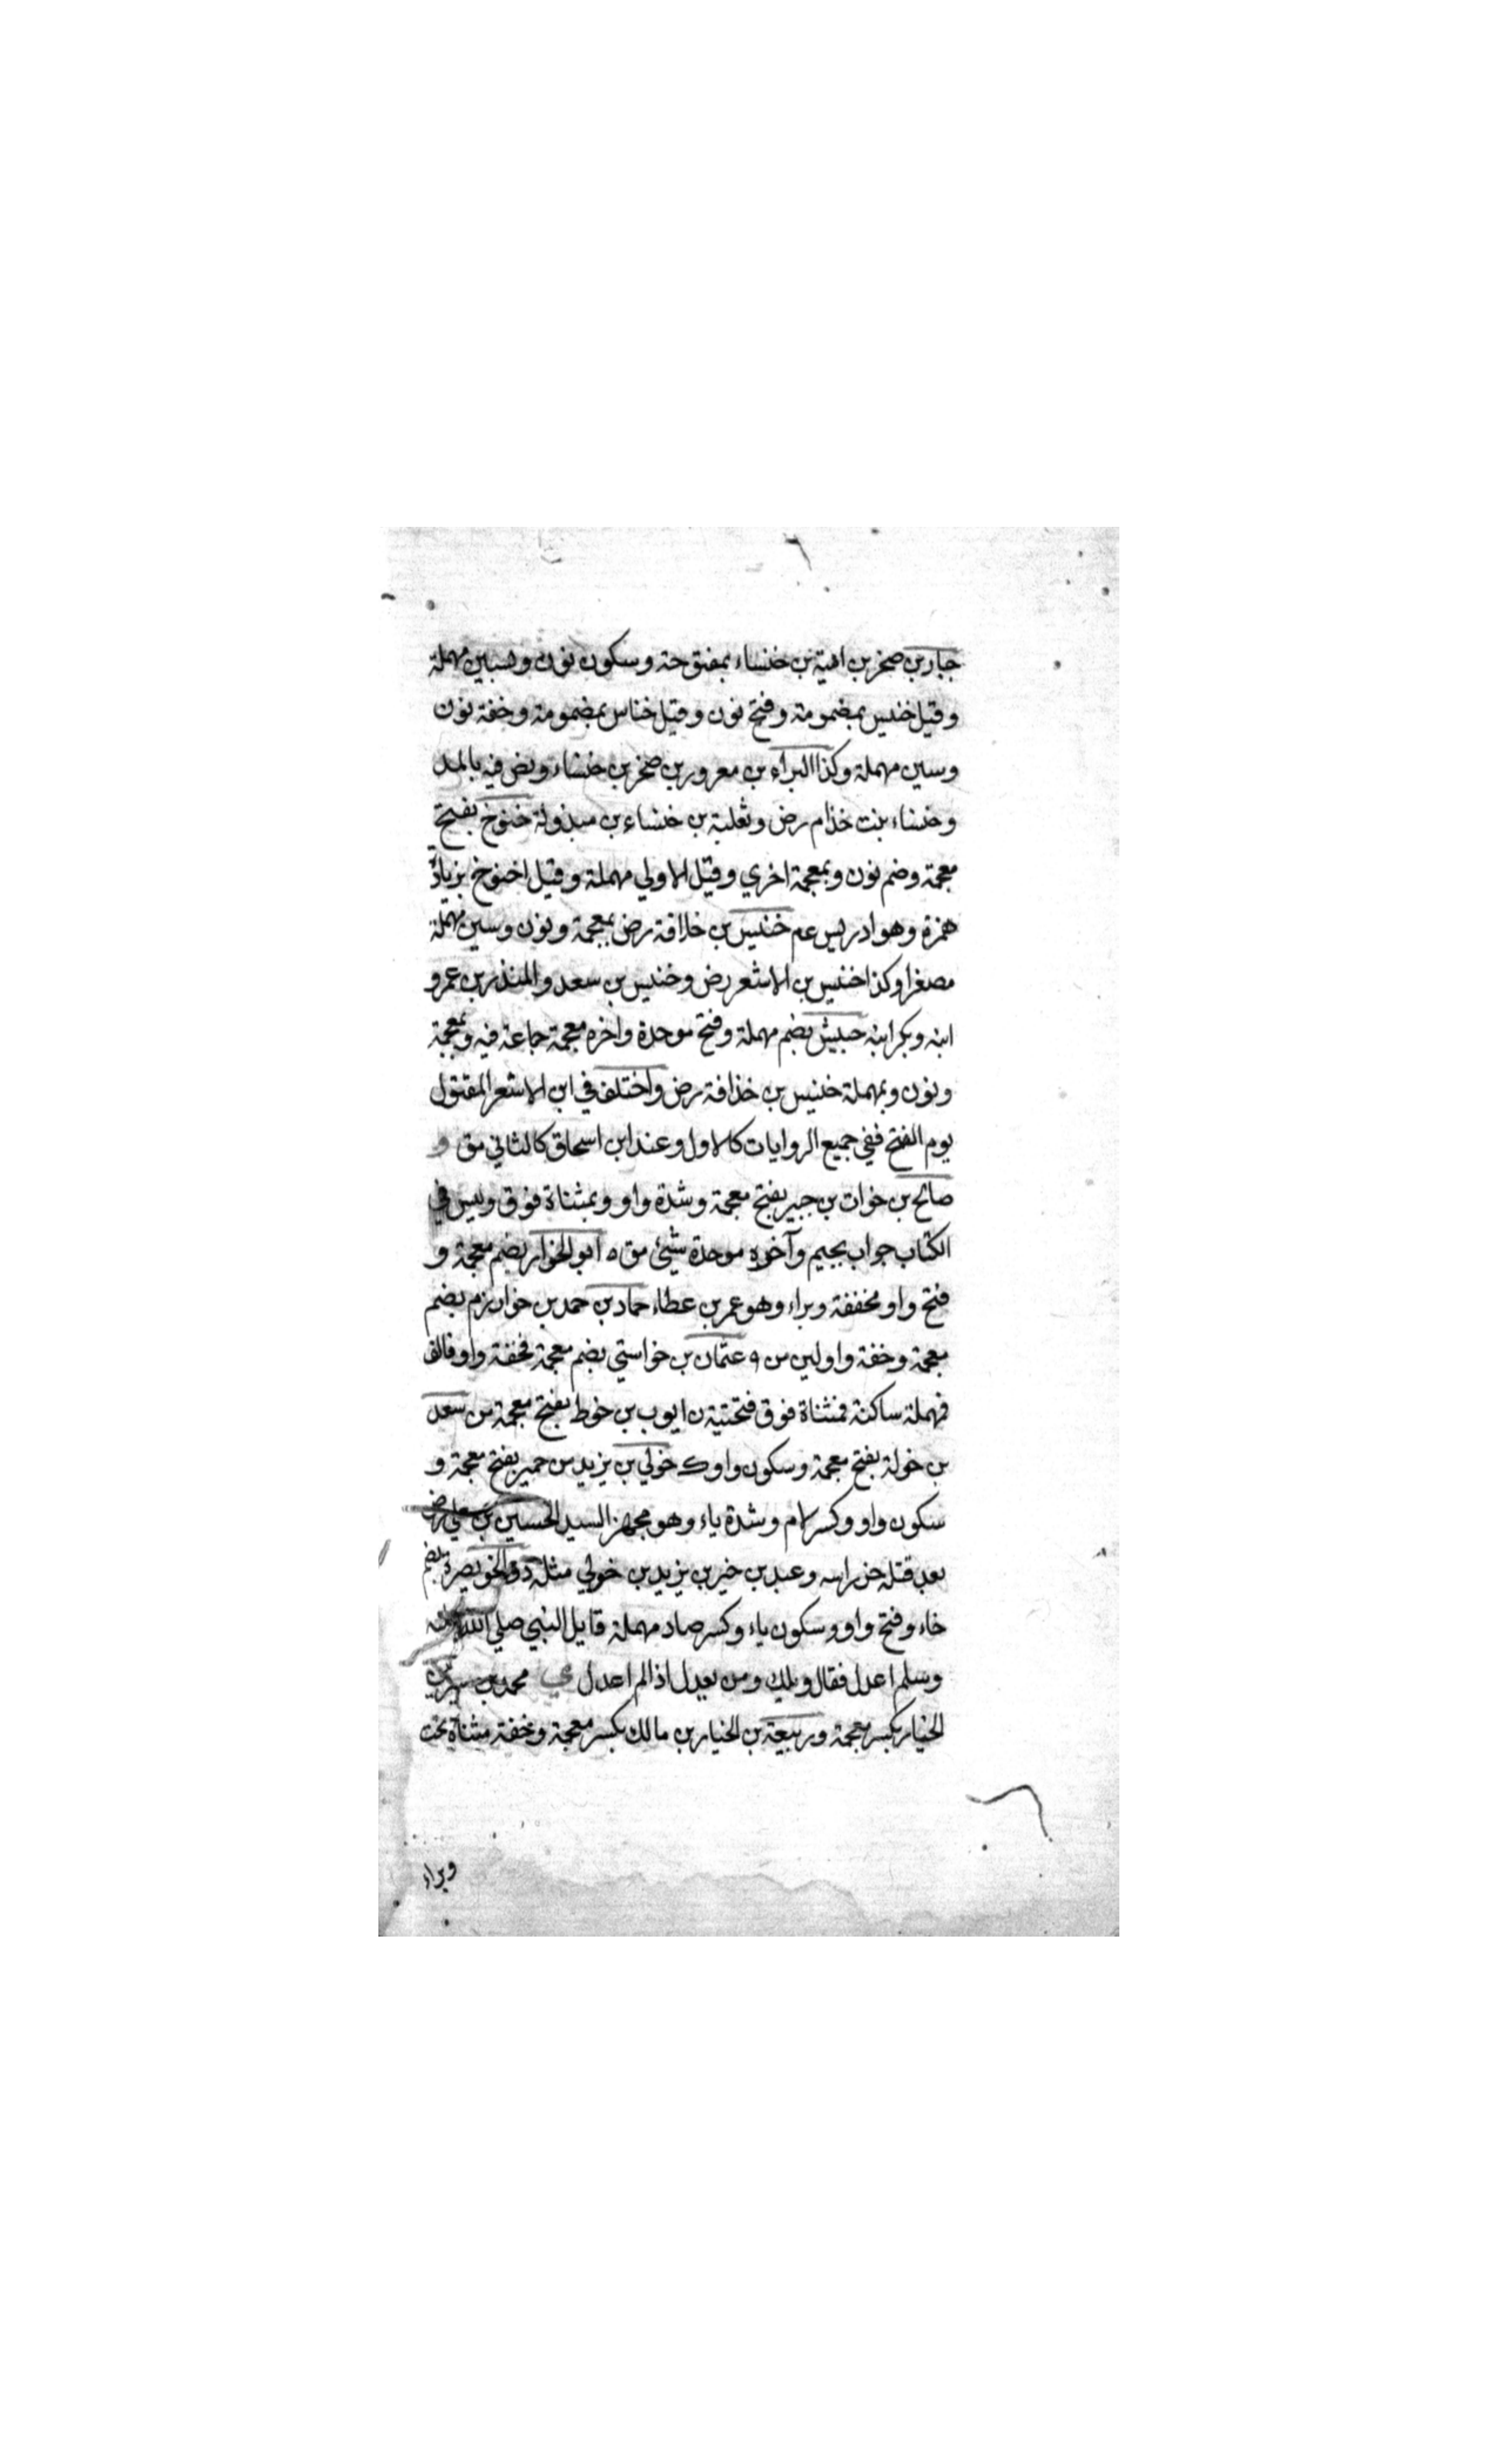 جبار بن صخر بن امية بن خنساء بمفتوحة وسكون نون وبسين مهملة
وقيل خنيس بمضمومة وفتح نون وقيل خناس بمضمومة وخفة نون
وسين مهملة وكذا البراء بن معرور بن صخر بن خنساء ونض فيه بالمد
وخنساء بنت خذام رض وثعلبة بن خنساء بن مبذولة خنوخ بفتح
معجمة وضم نون وبمعجمة اخري وقيل الاولي مهملة وقيل اخنوخ بزيادة
همزة وهو ادريس عم خنيس بن خلافة رض بمعجمة ونون وسين مهملة
مصغرا وكذا خنيس بن الاشعر رض وخنيس بن سعد والمنذر بن عمرو
ابنه وبكر ابنه حبيش بضم مهملة وفتح موحدة واخره معجمة جماعة فيه وبمعجمة
ونون وبمهملة خنيس بن خذافة رض واختلف في ابن الاشعر المقتول
يوم الفتح ففي جميع الروايات كالاول وعند ابن اسحاق كالثاني مق و
صالح بن خوات بن جبير بفتح معجمة وشدة واو وبمثناة فوق وليس في
الكتاب جواب بجيم وآخره موحدة شيئ مق ه ابو الخوار بضم معجمة و
فتح واو مخففة وبراء وهو عمر بن عطاء حماد بن حمد بن خوارزم بضم
معجمة وخفة واو لين س و عثمان بن خواستي بضم معجمة فخفة واو فالف
فمهملة ساكنة فمثناة فوق فتحتية ن ايوب بن خوط بفتح معجمة س سعد
بن خولة بفتح معجمة وسكون واو ك خولي بن يزيد س حمير بفتح معجمة و
سكون واو وكسر لام وشدة ياء وهو مجهز السيد الحسين بن علي رض
بعد قتله حز راسه وعبد بن خير بن يزيد بن خولي مثله ذو الخويصرة بضم
خاء وفتح واو وسكون ياء وكسر صاد مهملة قايل النبي صلي الله
وسلم اعدل فقال ويلك ومن يعدل اذا لم اعدل ي محمد بن
الخيار بكسر معجمة وربيعة بن الخيار بن مالك بكسر معجمة وخفة مثناة تحت
وبراء